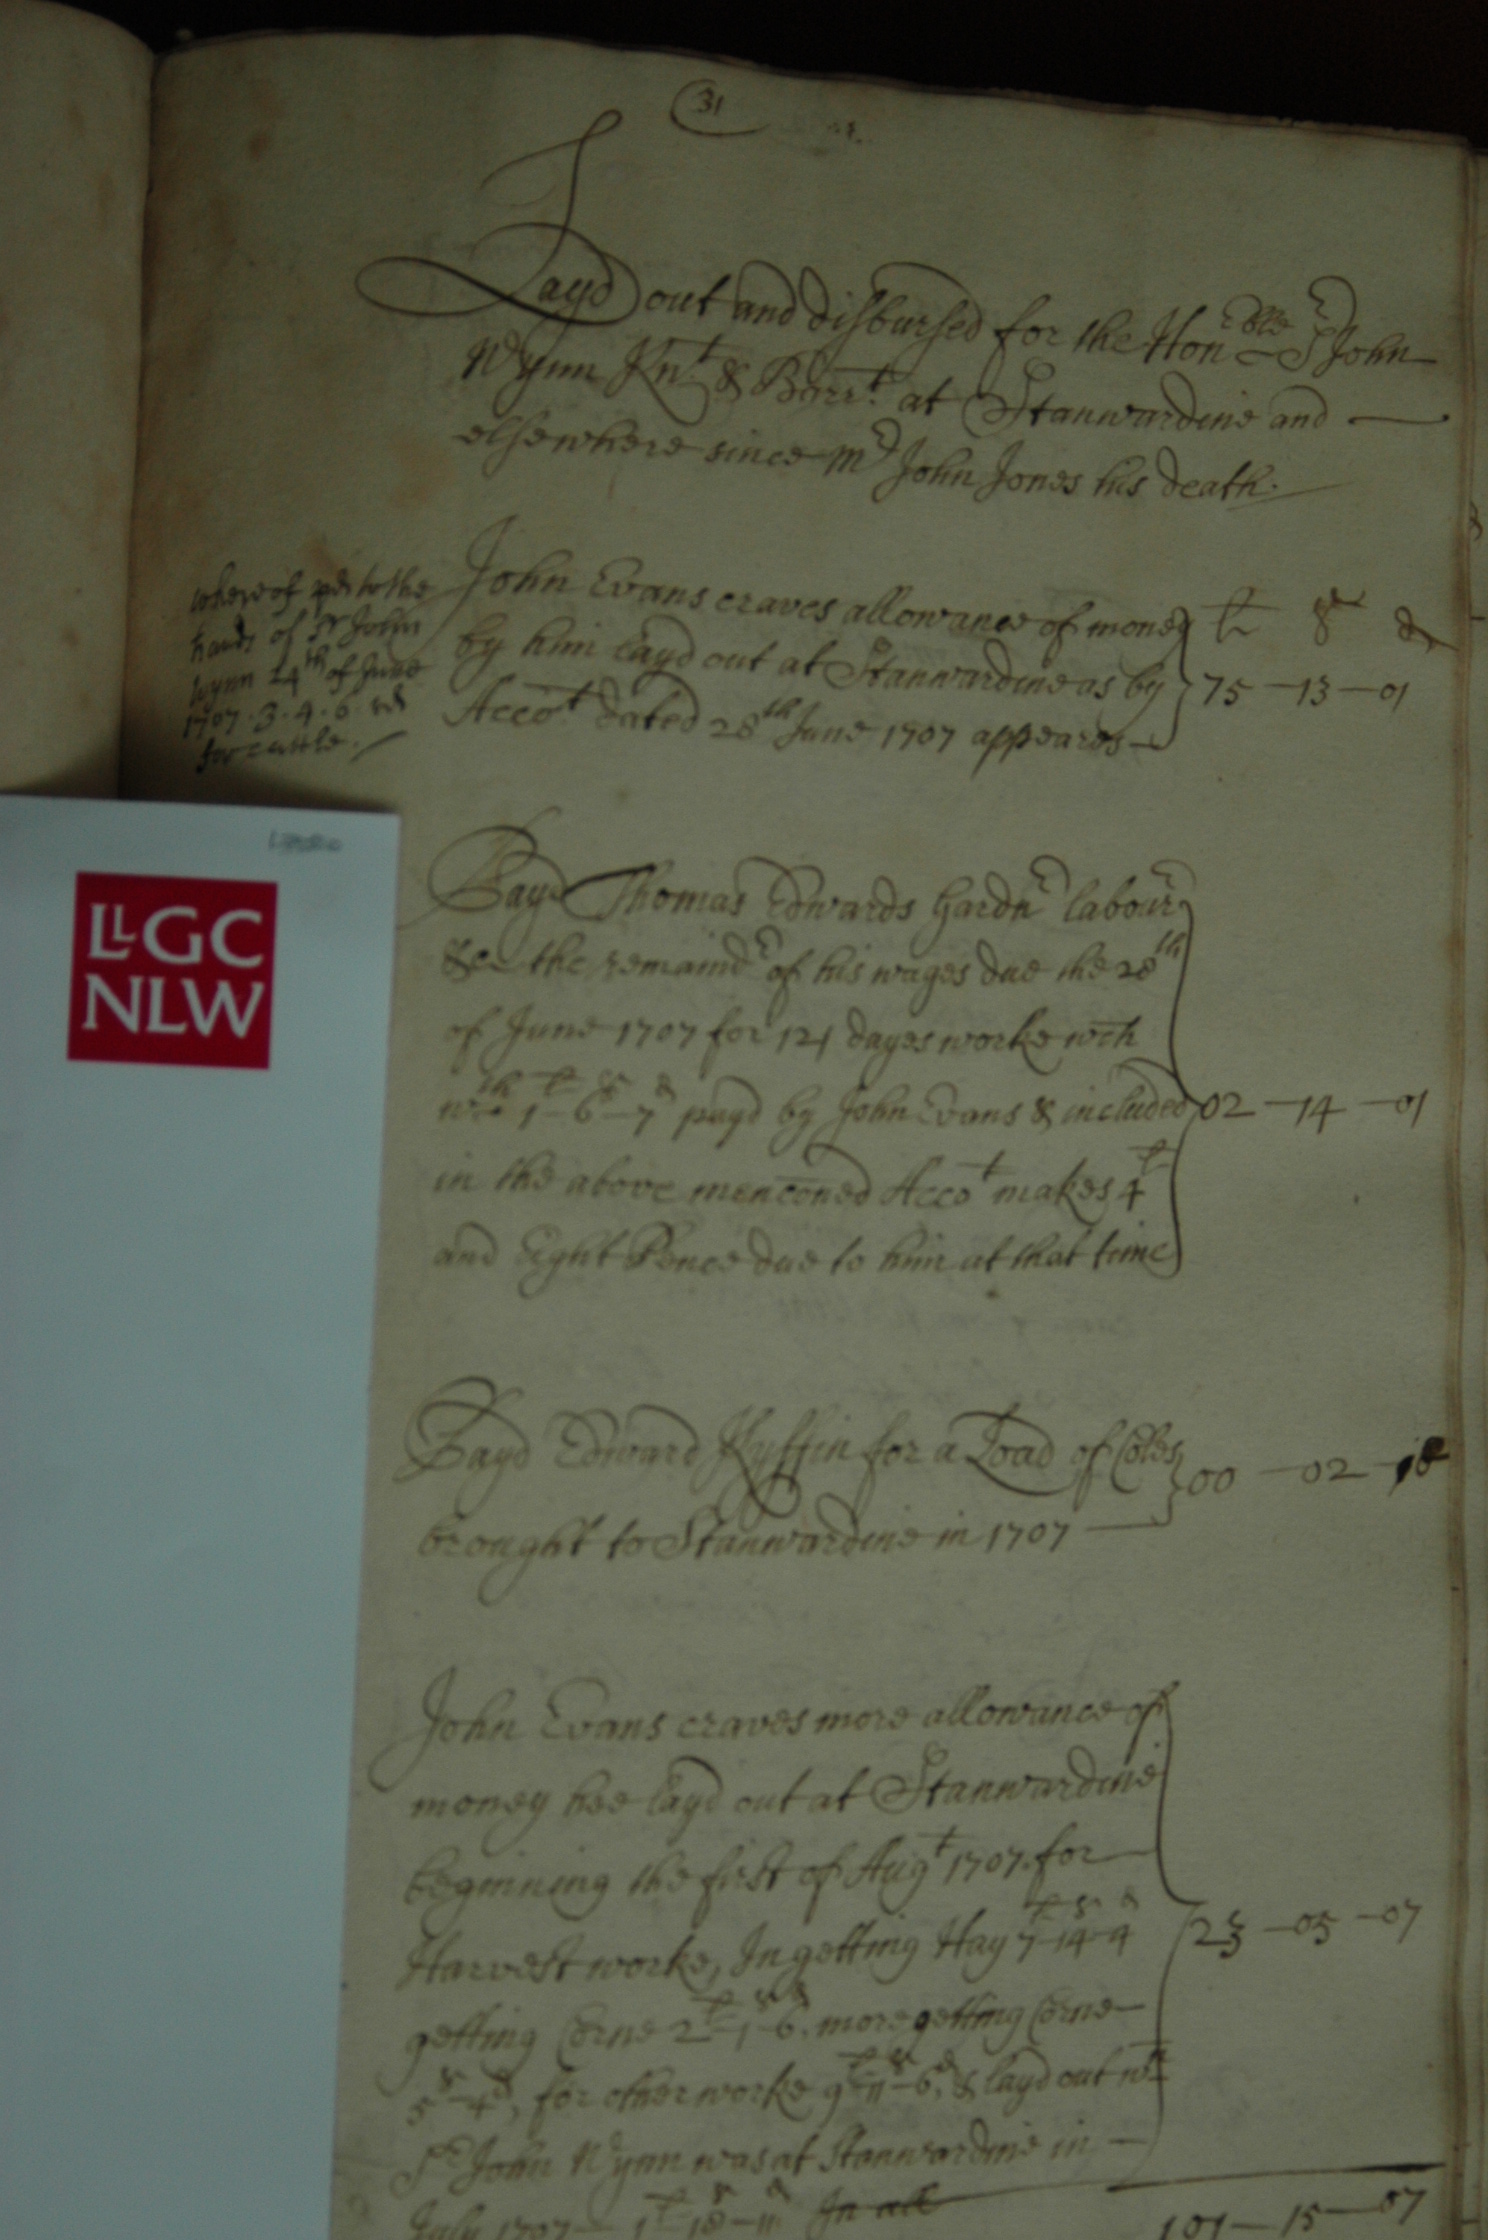 31
Layd out and disbursed for the Hon:ble Sr John
Wynn Knt. & Barrt. at Stanwardine and
elsewhere since Mr John Jones his death.
whereof pd to the
hands of Sr John
Wynn 14th of June
1707 . 3 . 4 . 6 .
for cattle.
John Evans craves allowance of money
by him layd out at Stanwardine as by
Accot dated 28th June 1707 appeares
li s d
75 - 13 - 01
LLGC
NLW
Payd Thomas Edwards Gardnr labourr
&c the remaindr of his wages due the 28th
of June 1707 for 121 dayes worke wch
wth 1li - 6s - 7d payd by John Evans & included
in the above mencõned Accot makes 4li
and Eight Pence due to him at that time
02 - 14 - 01
Payd Edward Kyffin for a Load of Coles
brought to Stanwardine in 1707
00 - 02 - 10
John Evans craves more allowance of
money hee layd out at Stanwardine
beginning the first of Augt 1707. for
Harvest worke, In getting Hay 7li-14s-4d
getting Corne 2li-1s-6d. more getting Corne
5s-4d, for other worke 9li-11s-6d, & layd out wn
Sr John Wynn was at Stanwardine in
July 1707 - 1li-18s-11d In all
23 - 05 - 07
101 - 15 - 07